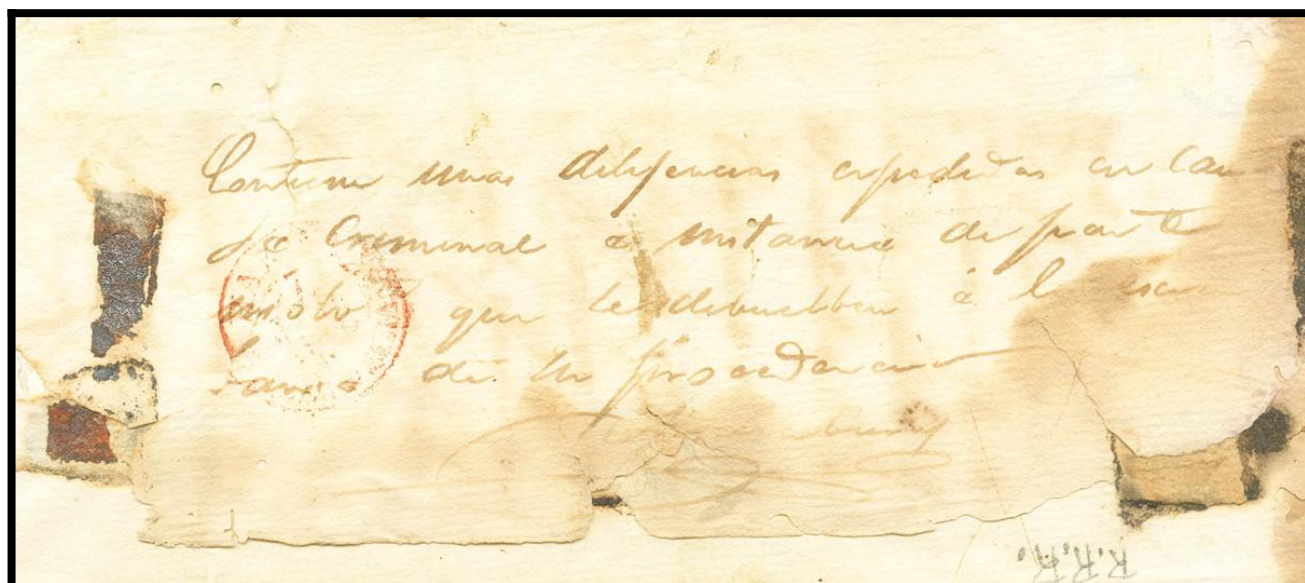 Contiene unas diligencias expedidas en Cau
sa Criminal a instancia de parte
que se debuelben á la
de su procedencia
R.R.R.